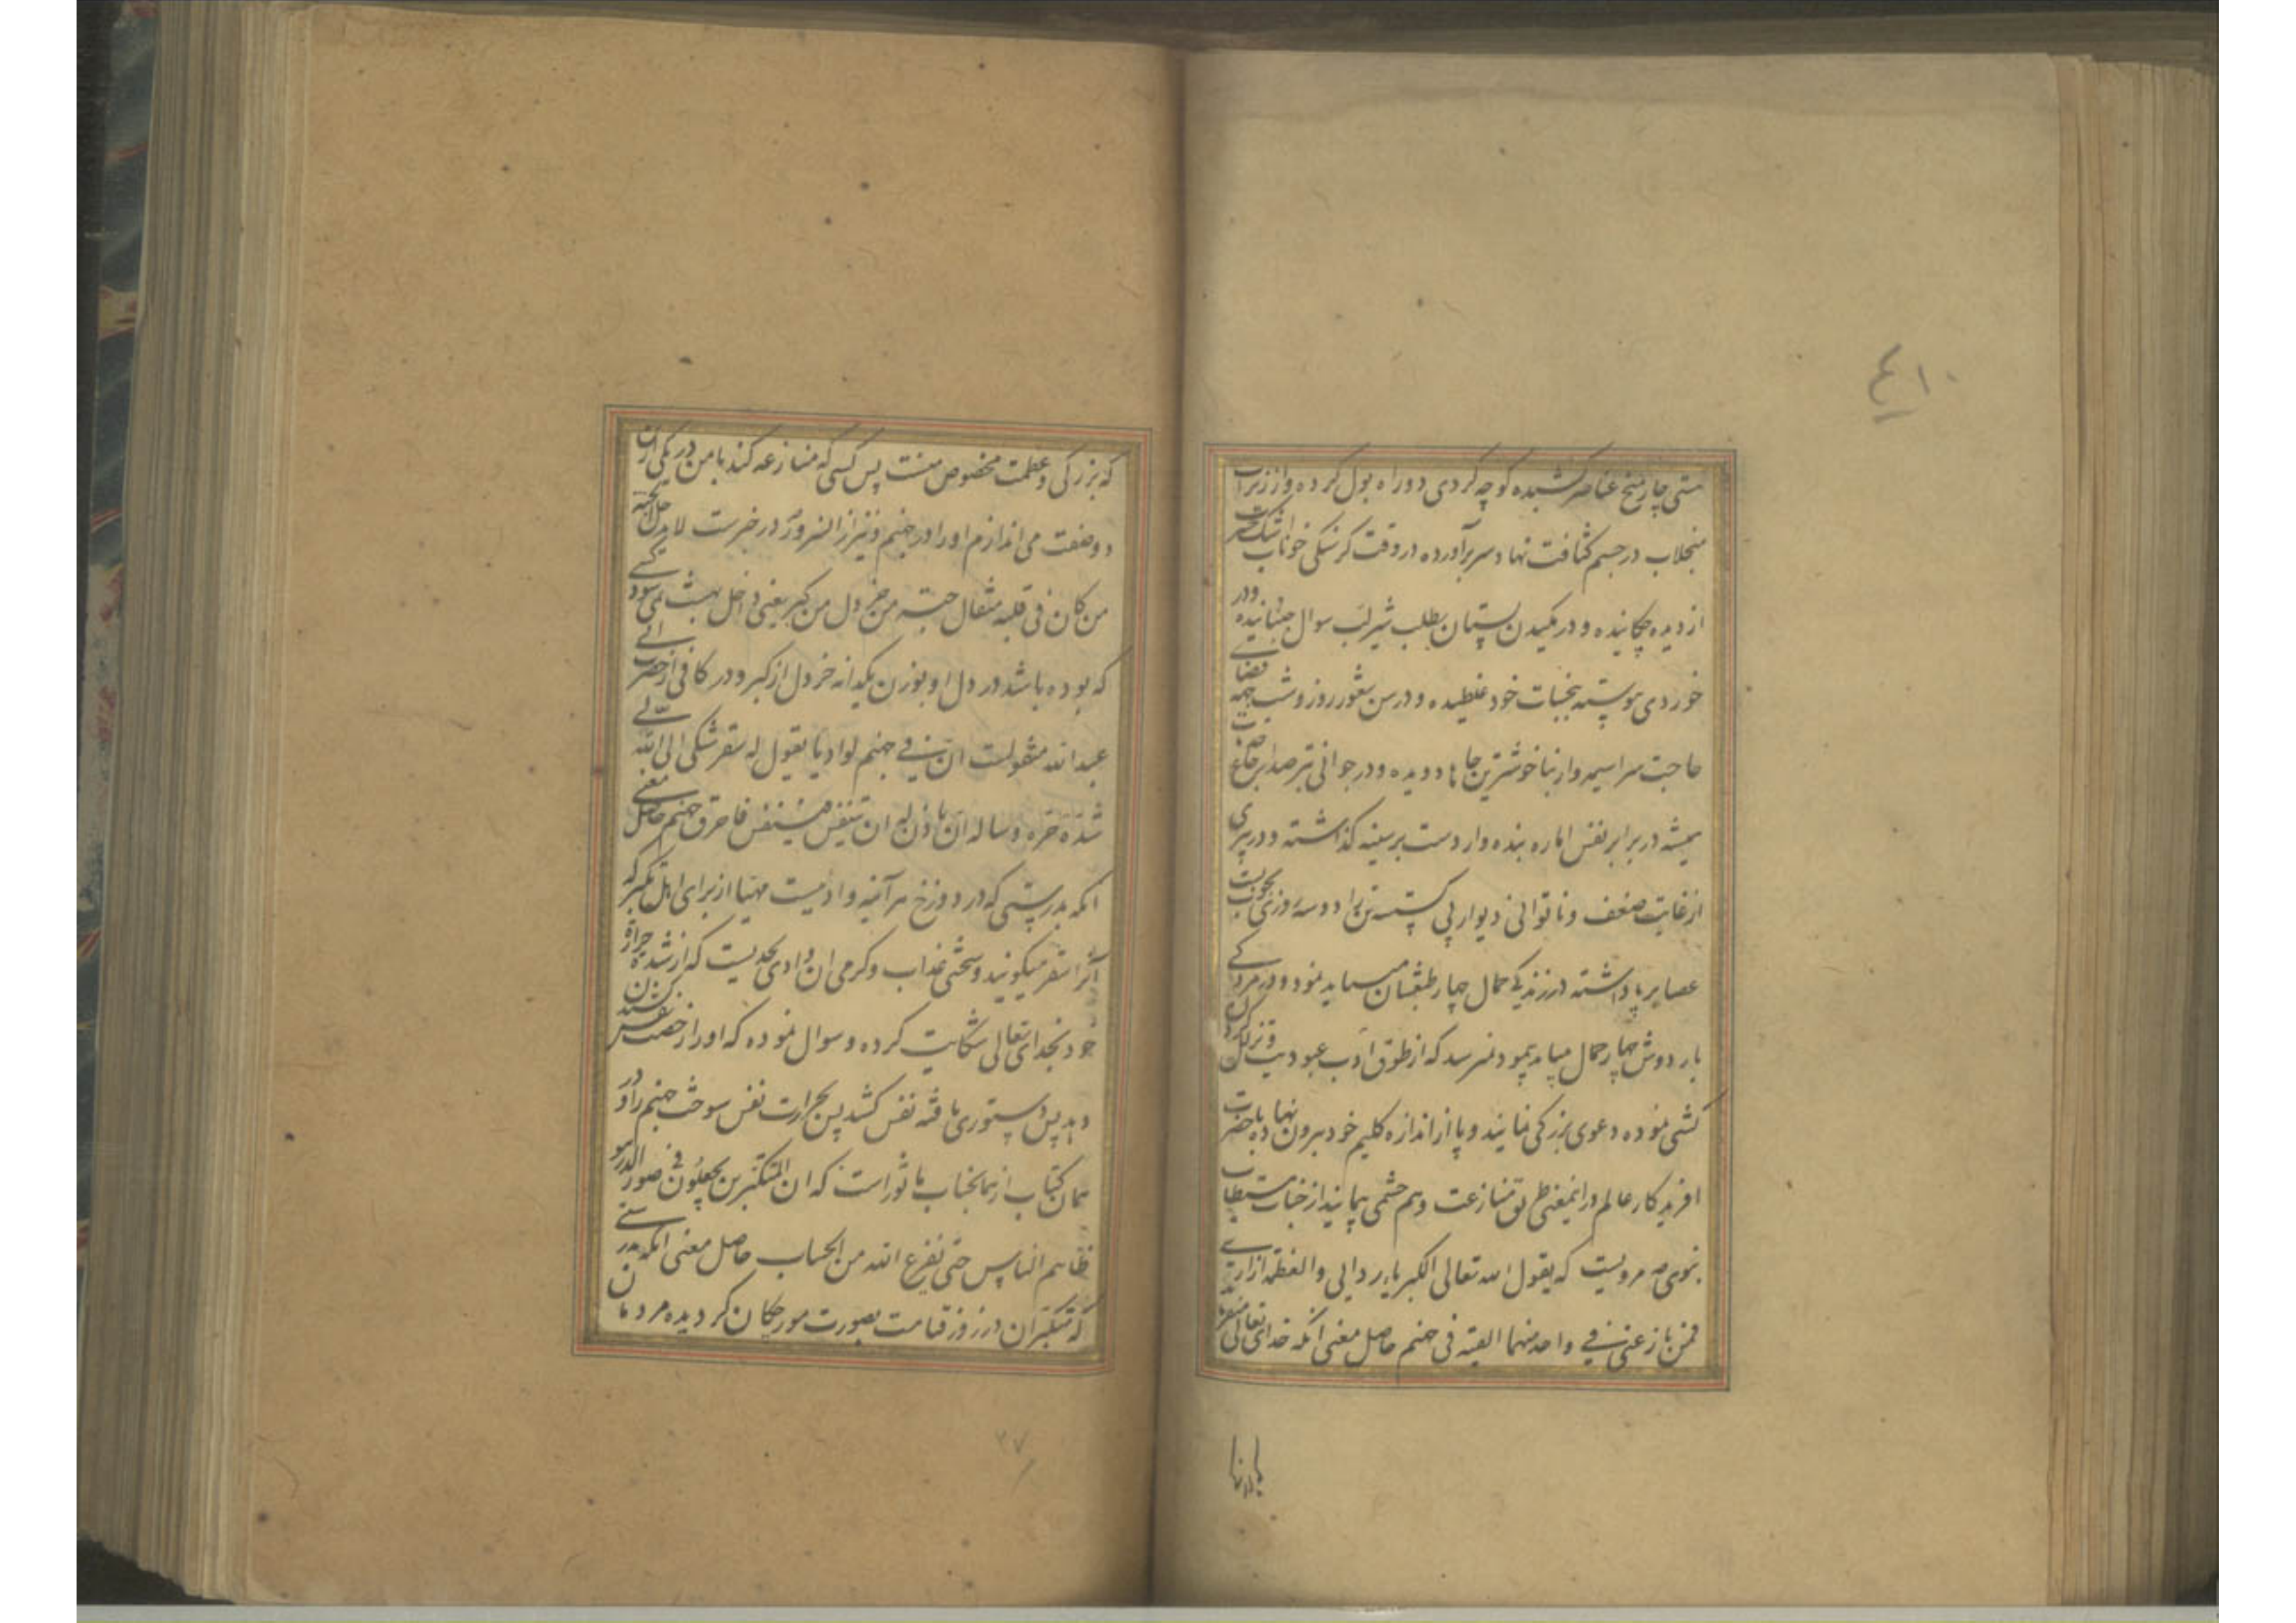 ۴۱۰
مستی چار میخ عناصر کشیده کوچه کردی دو راه بول کرده و از زیراب
منجلاب در جسم کثافت نهاد سر برآورده در وقت کرسنکی خوناب اشک حسرت
از دیده چکانیده و در مکیدن پستان بطلب شیر لب سوال جنبانیده و در
خوردی پیوسته بنجاسات خود غلطیده و در سن شعور روز و شب بجهه قضای
حاجت سراسیمه وار بناخوشترین جاها دویده و در جوانی
همیشه در برابر نفس اماره بنده وار دست بر سینه کذاشته و در پیری
از غایت ضعف و ناتوانی دیوار پی کسسته تن را دو سه روزی بچوب بست
عصا بر پا داشته در زندکی حمال چهار طبعشان میباید نمود و در مردکی
بار دوش چهار حمال میباید بود نمیرسد که از طوق ادب عبودیت
کشی نموده دعوی بزرکی نمایند و پا از اندازه کلیم خود بیرون نهاده با حضرت
افریدکار عالم در اینمعنی طریق منازعت و هم چشمی پیمایند از جناب مستطاب
نبوی ص مرویست که یقول الله تعالی الکبریاء ردایی و العظمه ازاری
فمن نازعنی فی واحد منهما القیته فی جهنم حاصل معنی آنکه خدای تعالی میفرماید
که بزرکی و عظمت مخصوص منست پس کسی که منازعه کند با من در یکی ازین
دو صفت می اندازم او را در جهنم و نیز از السرور در خبرست لا یدخل الجنة
من کان فی قلبه مثقال حبة من خردل من کبر یعنی داخل بهشت نمی شود کسی
که بوده باشد در دل او بوزن یکدانه خردل از کبر و در کافی از حضرت ابی
عبدالله منقولست ان فی جهنم لوادیا یقول له سقر شکی الی الله
شدة حره و ساله ان یاذن له ان یتنفس فتنفس فاحرق جهنم حاصل معنی
آنکه بدرستی که در دوزخ هر آینه وادیست مهیا از برای اهل تکبر که
آنرا سقر میکویند و سختی عذاب و کرمی ان وادی بحدیست که از شدة حرارة
خود بخدای تعالی شکایت کرده و سوال نموده که او را رخصت نفس کشیدن
دهد پس دستوری یافته نفس کشید پس بحرارت نفس سوخت جهنم را و در
همان کتاب از همانجناب ماثور است که ان المتکبرین یجعلون فی صور الذر
یتوطاهم الناس حتی یفرغ الله من الحساب حاصل معنی آنکه بدرستی
که متکبران در روز قیامت بصورت مورچکان کردیده مردمان
۳۷